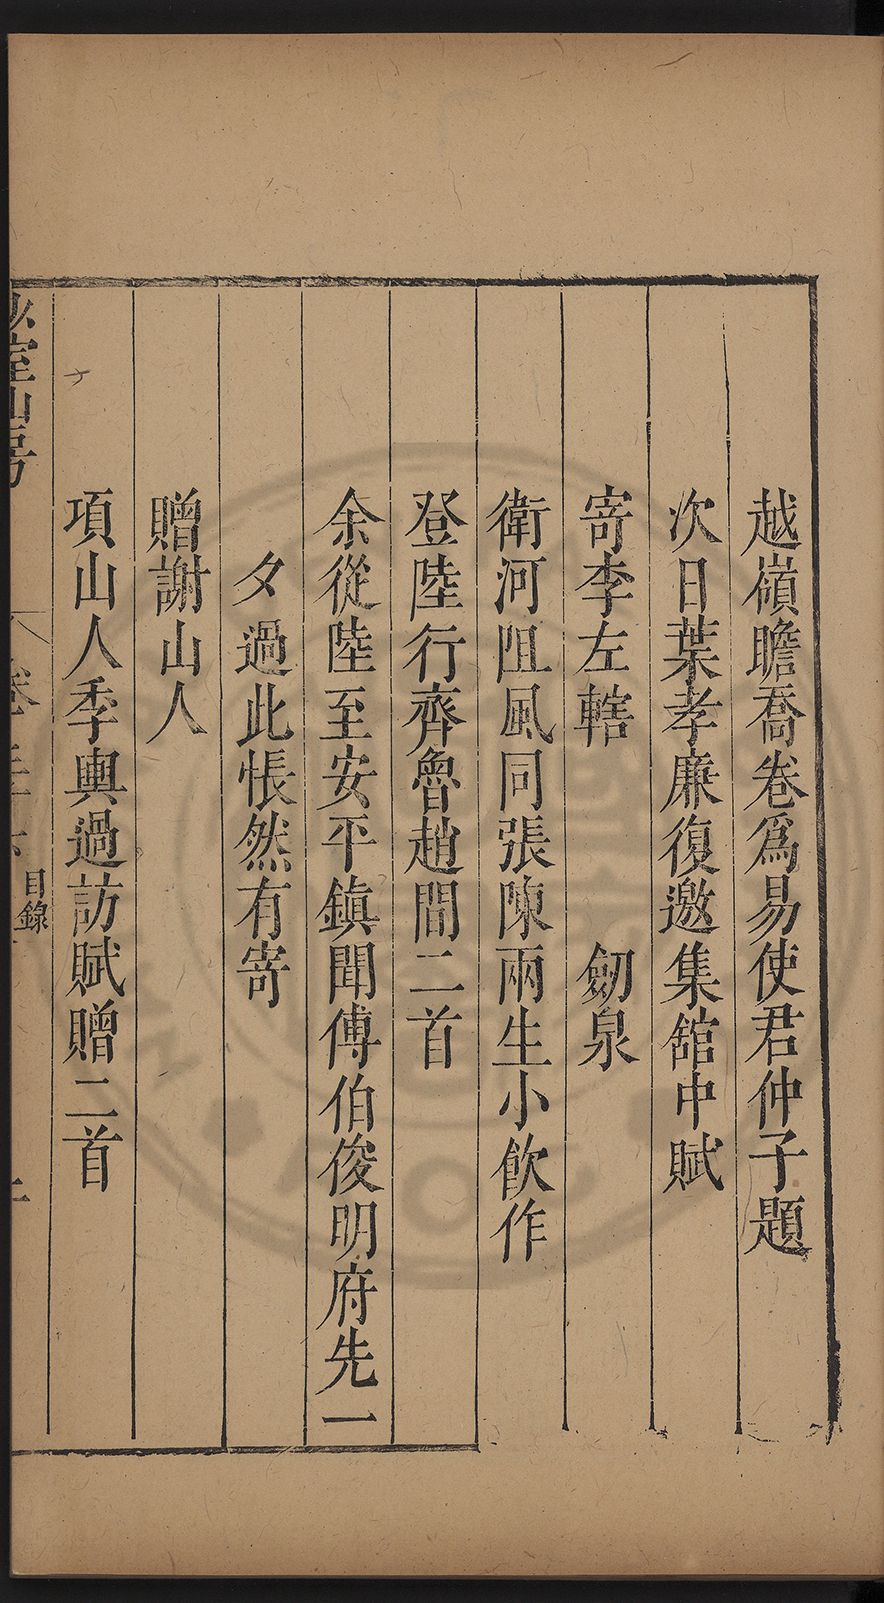 越嶺瞻喬卷爲易使君仲子題
次日葉孝廉復邀集舘中賦
寄李左轄　劒泉
衛河阻風同張陳兩生小飲作
登陸行齊魯趙間二首
余從陸至安平鎮聞傅伯俊明府先一
夕過此悵然有寄
贈謝山人
項山人季輿過訪賦贈二首
室山房
目錄